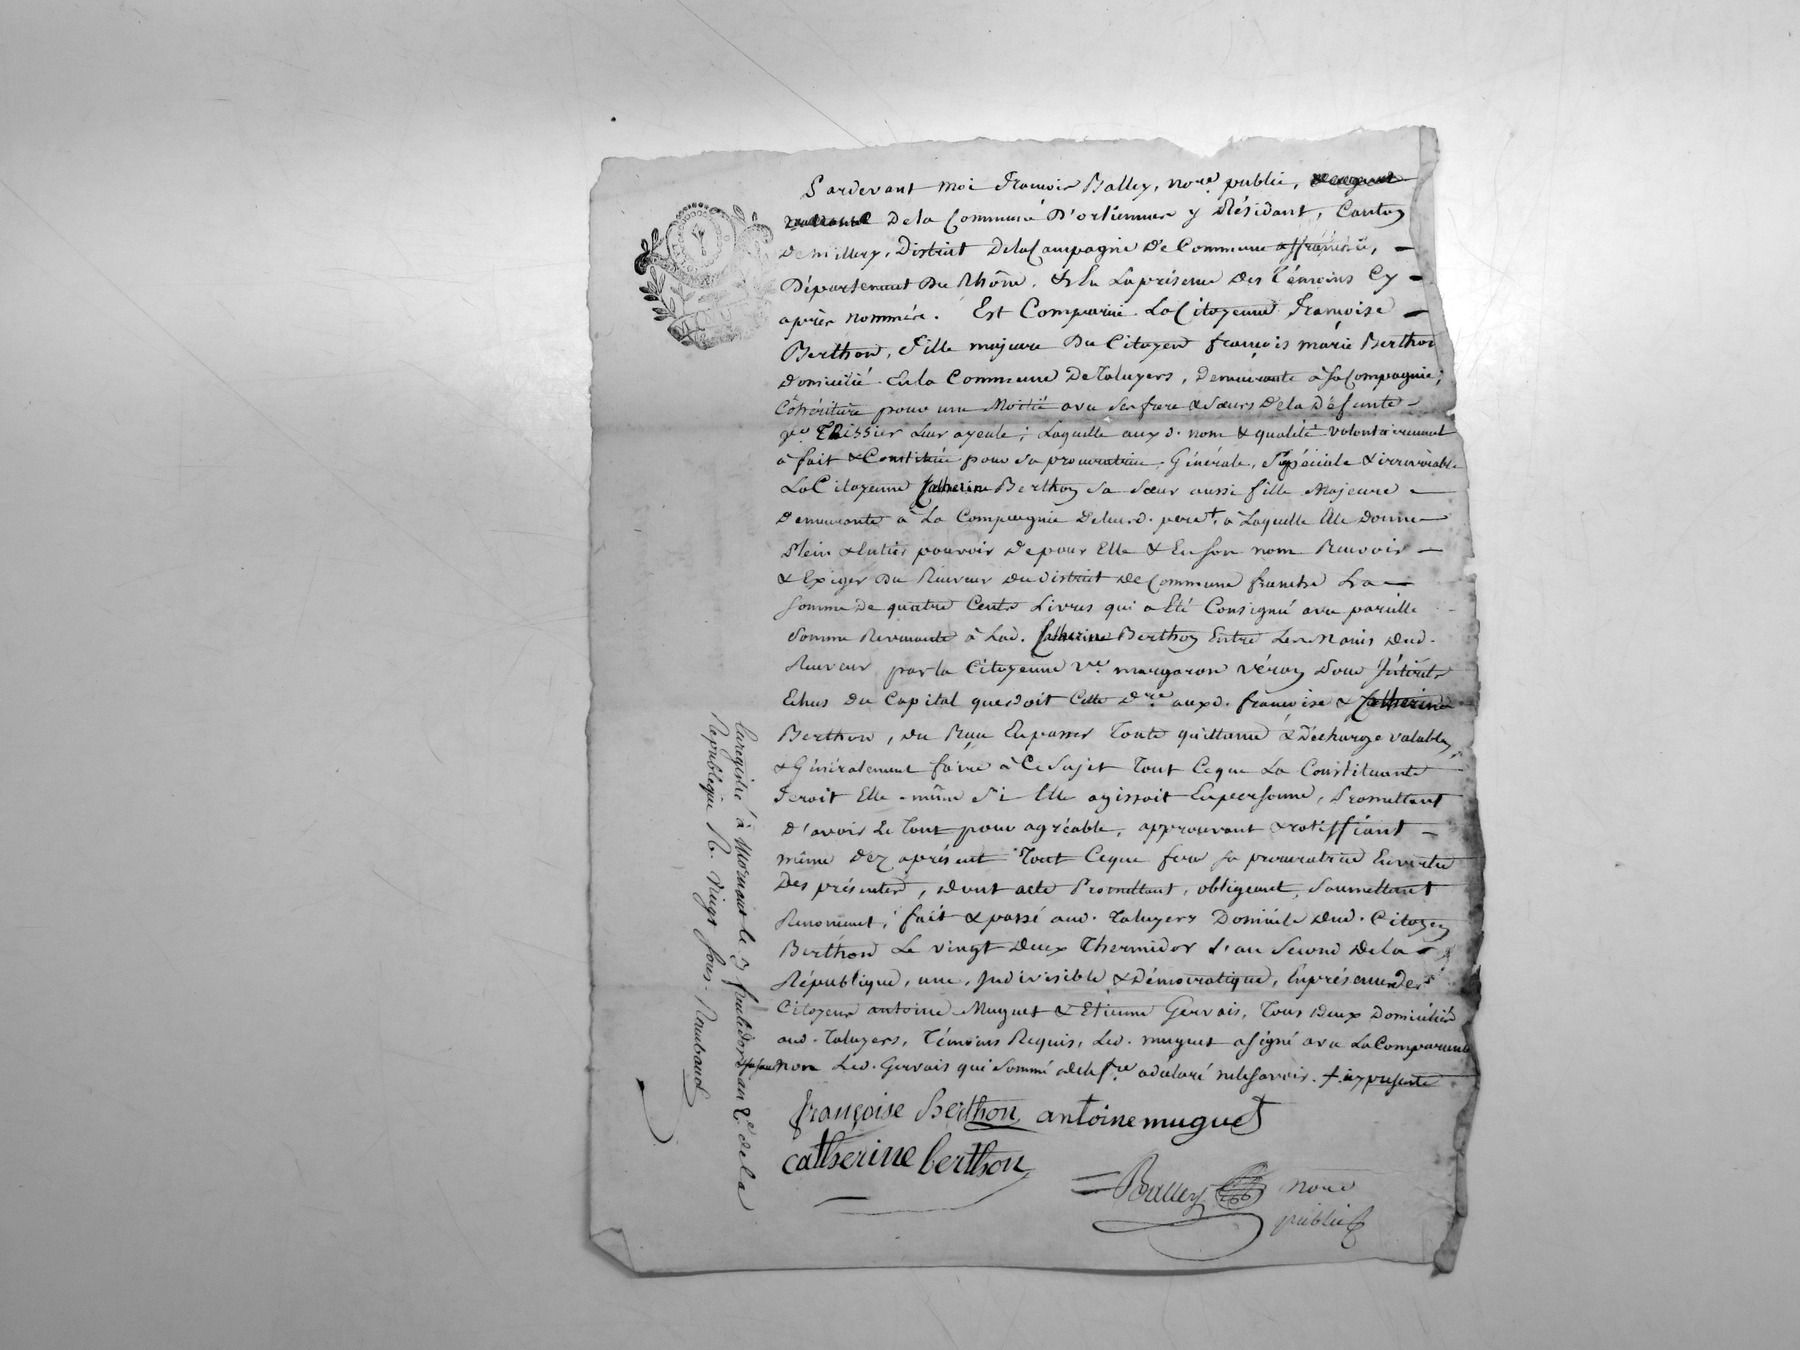 Pardevant moi François Balley, nore. public,
de la Commune D'orliennas y Résidant, Canton
De millery, District De la Campagne De Commune affranchie,
Département Du Rhône, & En La présence Des Témoins Cy
après nommés. Est Comparue La Citoyenne Françoise
Berthon, Fille majeure Du Citoyen françois marie Berthon
Domicilié En la Commune De Taluyers, Demeurante à sa Compagnie,
Cohéritière pour une Moitié avec ses frere & sœurs De la Défunte
Thissier Leur ayeule; Laquelle aux d. nom & qualité volontairement
à fait & Constitué pour sa procuratrice Générale, Spéciale & irrévocable
La Citoyenne Catherine Berthon sa sœur aussi fille Majeure
Demeurante à La Compagnie De leur d. pere, à Laquelle Elle Donne
Plein & Entier pouvoir De pour Elle & En son nom Recevoir
& Exiger Du Receveur Du District De Commune franche La
somme De quatre Cents Livres qui a Eté Consigné avec pareille
somme Revenante à Lad. Catherine Berthon Entre Les Mains Dud.
Receveur par la Citoyenne ve. margaron véron pour Intérêts
Echus Du Capital que doit Cette Dre. aux d. françoise & Catherine
Berthon, Du Reçu En passer Toute quittance & Décharge valables
& Généralement faire à Ce Sujet Tout Ce que La Constituante
feroit Elle-même Si Elle agissoit En personne, Promettant
D'avoir Le Tout pour agréable, approuvant & ratiffiant
même Dez aprésent Tout Ce que fera sa procuratrice En vertu
Des présentes, Dont acte Promettant, obligeant, Soumettant
Renonçant, fait & passé aud. Taluyers Domicile Dud. Citoyen
Berthon Le vingt Deux Thermidor L'an Second De la
République, une, Indivisible & Démocratique, En présence Des
Citoyens antoine Muguet & Etienne Gervais, Tous Deux Domiciliés
aud. Taluyers, Témoins Requis, Led. muguet a signé avec La Comparante
non Led. Gervais qui sommé a déclaré ne le savoir.
françoise Berthon antoine muguet
catherine berthon
Balley nore
public
Enregistré à Mornant le 3 fructidor an 2e de la
République R. vingt sous. Roubaud